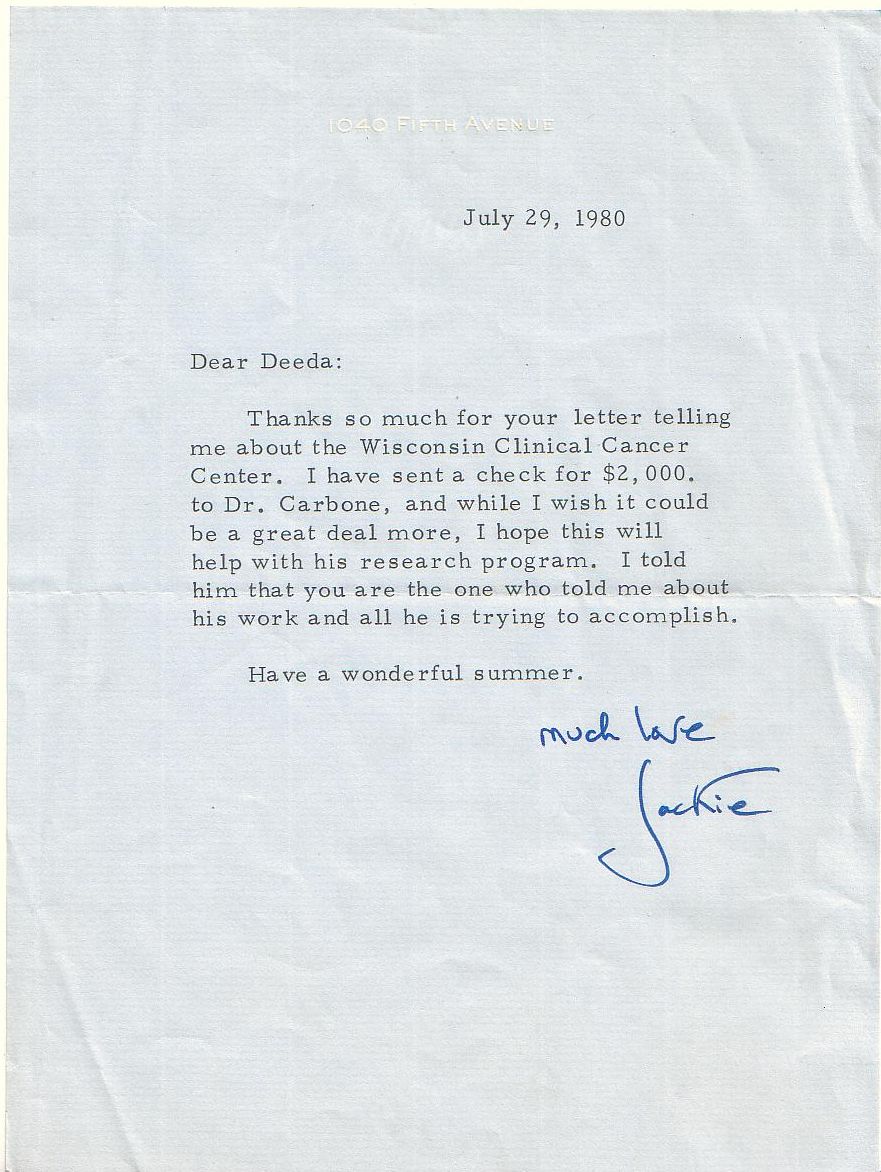 1040 FIFTH AVENUE
July 29, 1980
Dear Deeda:
Thanks so much for your letter telling
me about the Wisconsin Clinical Cancer
Center. I have sent a check for $2,000.
to Dr. Carbone, and while I wish it could
be a great deal more, I hope this will
help with his research program. I told
him that you are the one who told me about
his work and all he is trying to accomplish.
Have a wonderful summer.
much love
Jackie